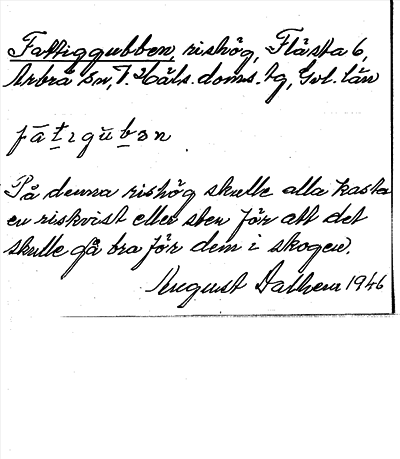 Fattiggubben, rishög, Flästa 6,
Arbrå sn, V. Häls. doms. tg, Gvl. län
På denna rishög skulle alla kasta
en riskvist eller sten för att det
skulle gå bra för dem i skogen.
August Dalhem 1946